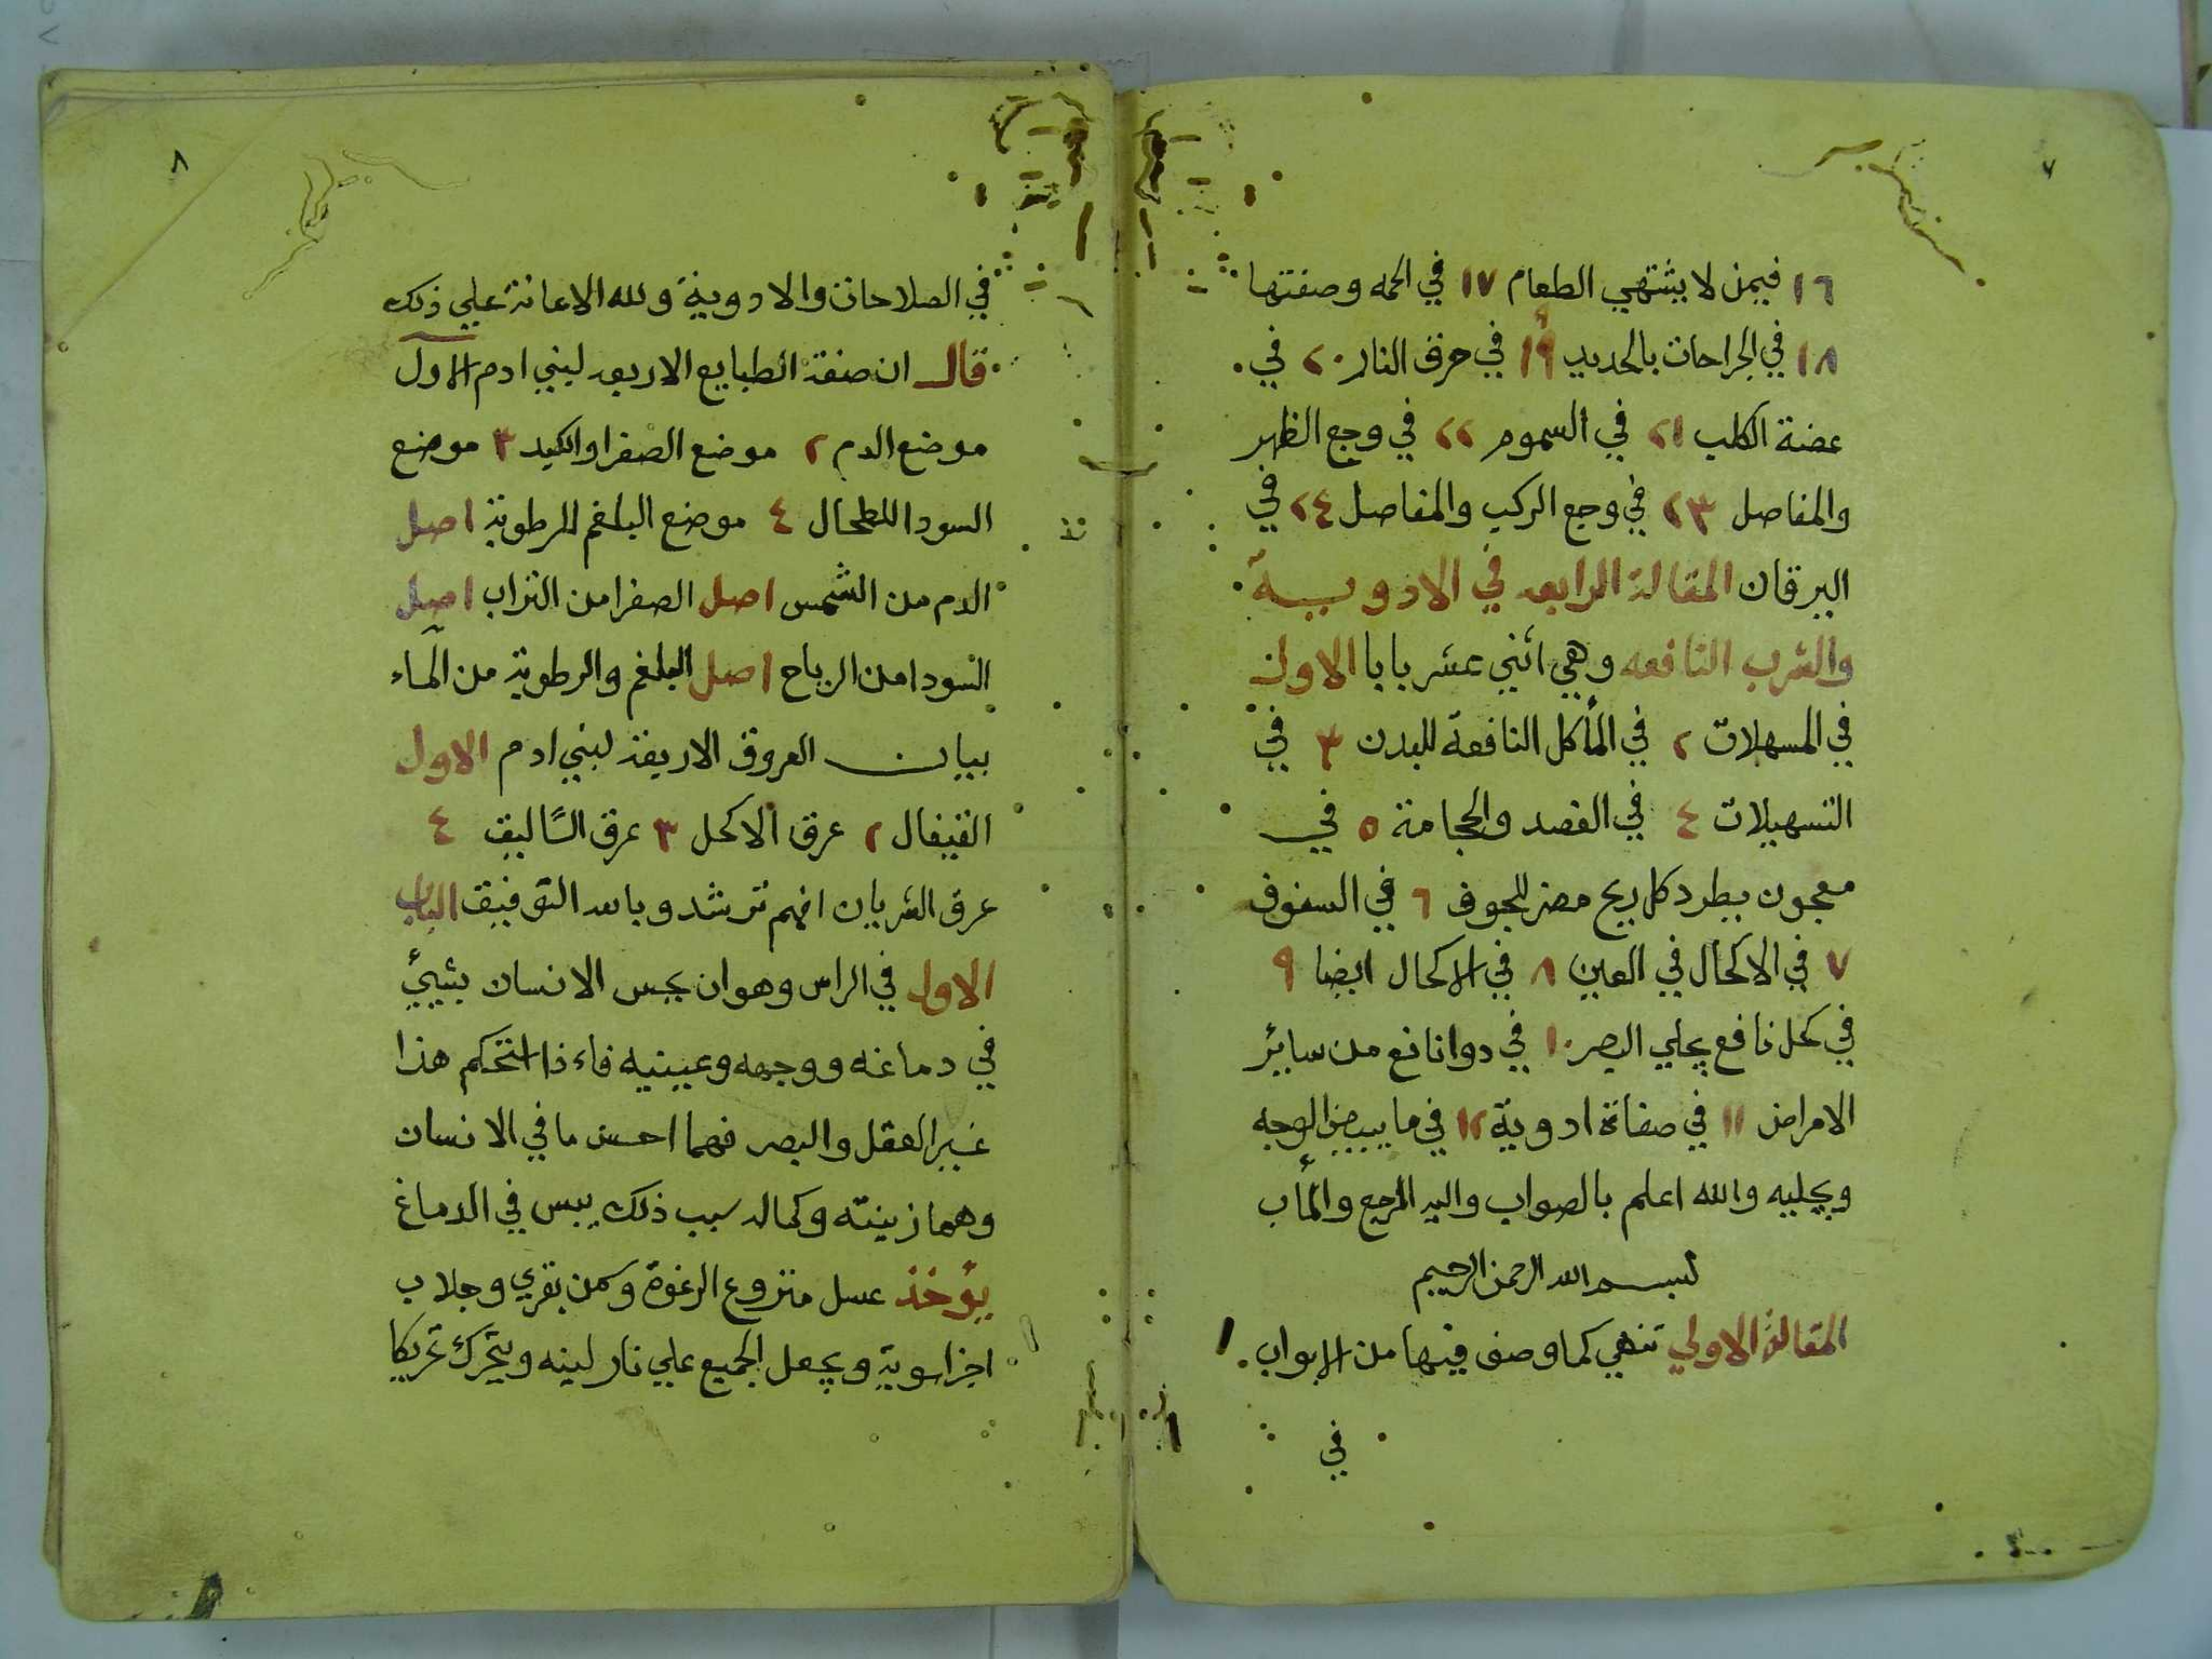 ٧
١٦ فيمن لا يشتهي الطعام ١٧ في الحمه وصفتها
١٨ في الجراحات بالحديد ١٩ في حرق النار ٢٠ في
عضة الكلب ٢١ في السموم ٢٢ في وجع الظهر
والمفاصل ٢٣ في وجع الركب والمفاصل ٢٤ في
اليرقان المقالة الرابعه في الادويــة
والشرب النافعه وهي اثني عشر بابا الاول
في المسهلات ٢ في المأكل النافعة للبدن ٣ في
التسهيلات ٤ في الفصد والحجامة ٥ في
معجون يطرد كل ريح مضر للجوف ٦ في السفوف
٧ في الاكحال في العين ٨ في الاكحال ايضا ٩
في كحل نافع يجلي البصر ١٠ في دوا نافع من سايئر
الامراض ١١ في صفاة ادوية ١٢ في ما يبيض الوجه
ويجليه والله اعلم بالصواب واليه المرجع والمأب
بســم الله الرحمن الرحيم
المقالة الاولي تنهي كما وصف فيها من الابواب
في
٨
في الصلاحات والادوية ولله الاعانة علي ذلك
قال ان صفة الطبايع الاربعه لبني ادم الاول
موضع الدم ٢ موضع الصفرا والكبد ٣ موضع
السودا للطحال ٤ موضع البلغم للرطوبة اصل
الدم من الشمس اصل الصفرا من التراب اصل
السودا من الرياح اصل البلغم والرطوبة من الماء
بيان العروق الاربعة لبني ادم الاول
القيفال ٢ عرق الاكحل ٣ عرق الساليق ٤
عرق الشريان افهم ترشد وبالله التوفيق الباب
الاول في الراس وهو ان يحس الانسان بشيئ
في دماغه ووجهه وعينيه فاءذا استحكم هذا
غير العقل والبصر فهما احسن ما في الانسان
وهما زينته وكماله سبب ذلك يبس في الدماغ
يؤخذ عسل منزوع الرغوة وسمن بقري وجلاب
اجزا سوية ويجعل الجميع علي نار لينه ويتحرك تحريكا